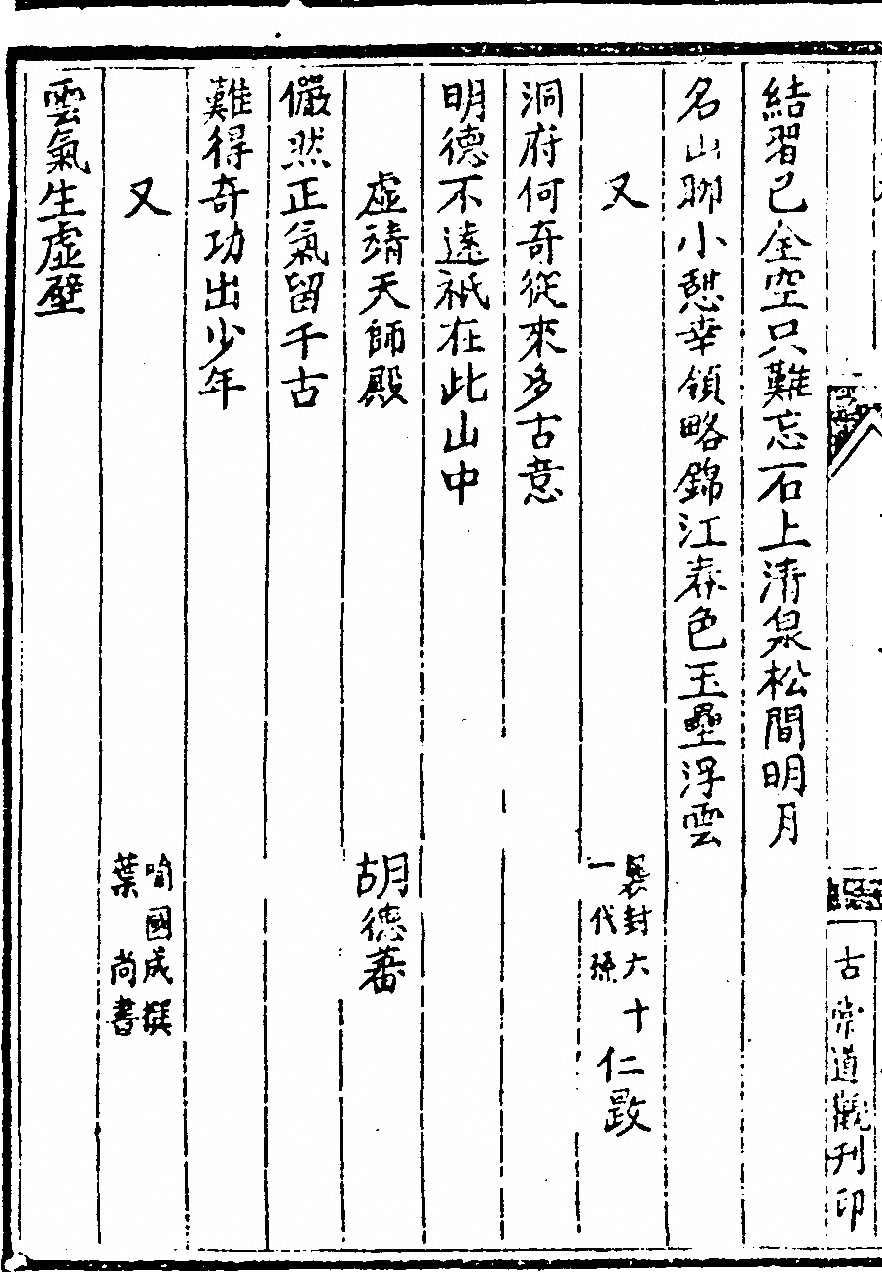 古常道觀刊印
結習已全空只難忘石上清泉松間明月
名山聊小憩幸領略錦江春色玉壘浮雲
又 襲封六十一代孫 仁𣈶
洞府何奇從來多古意
明德不遠祇在此山中
虛靖天師殿 胡德蕃
儼然正氣留千古
難得奇功出少年
又 喻國成撰 葉尚書
雲氣生虛壁